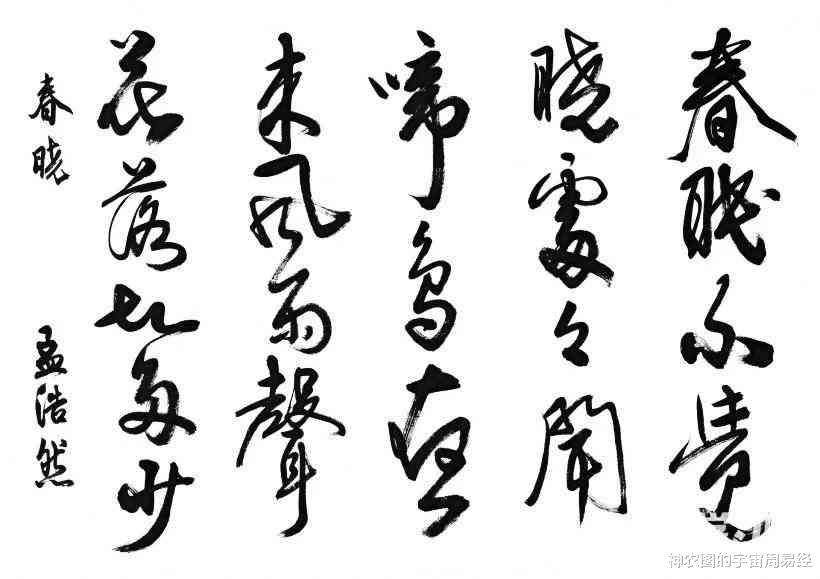 春眠不覺
晓處々聞
啼鸟夜
来风雨聲
花落知多少
春晓 孟浩然
神农图的宇宙周易经